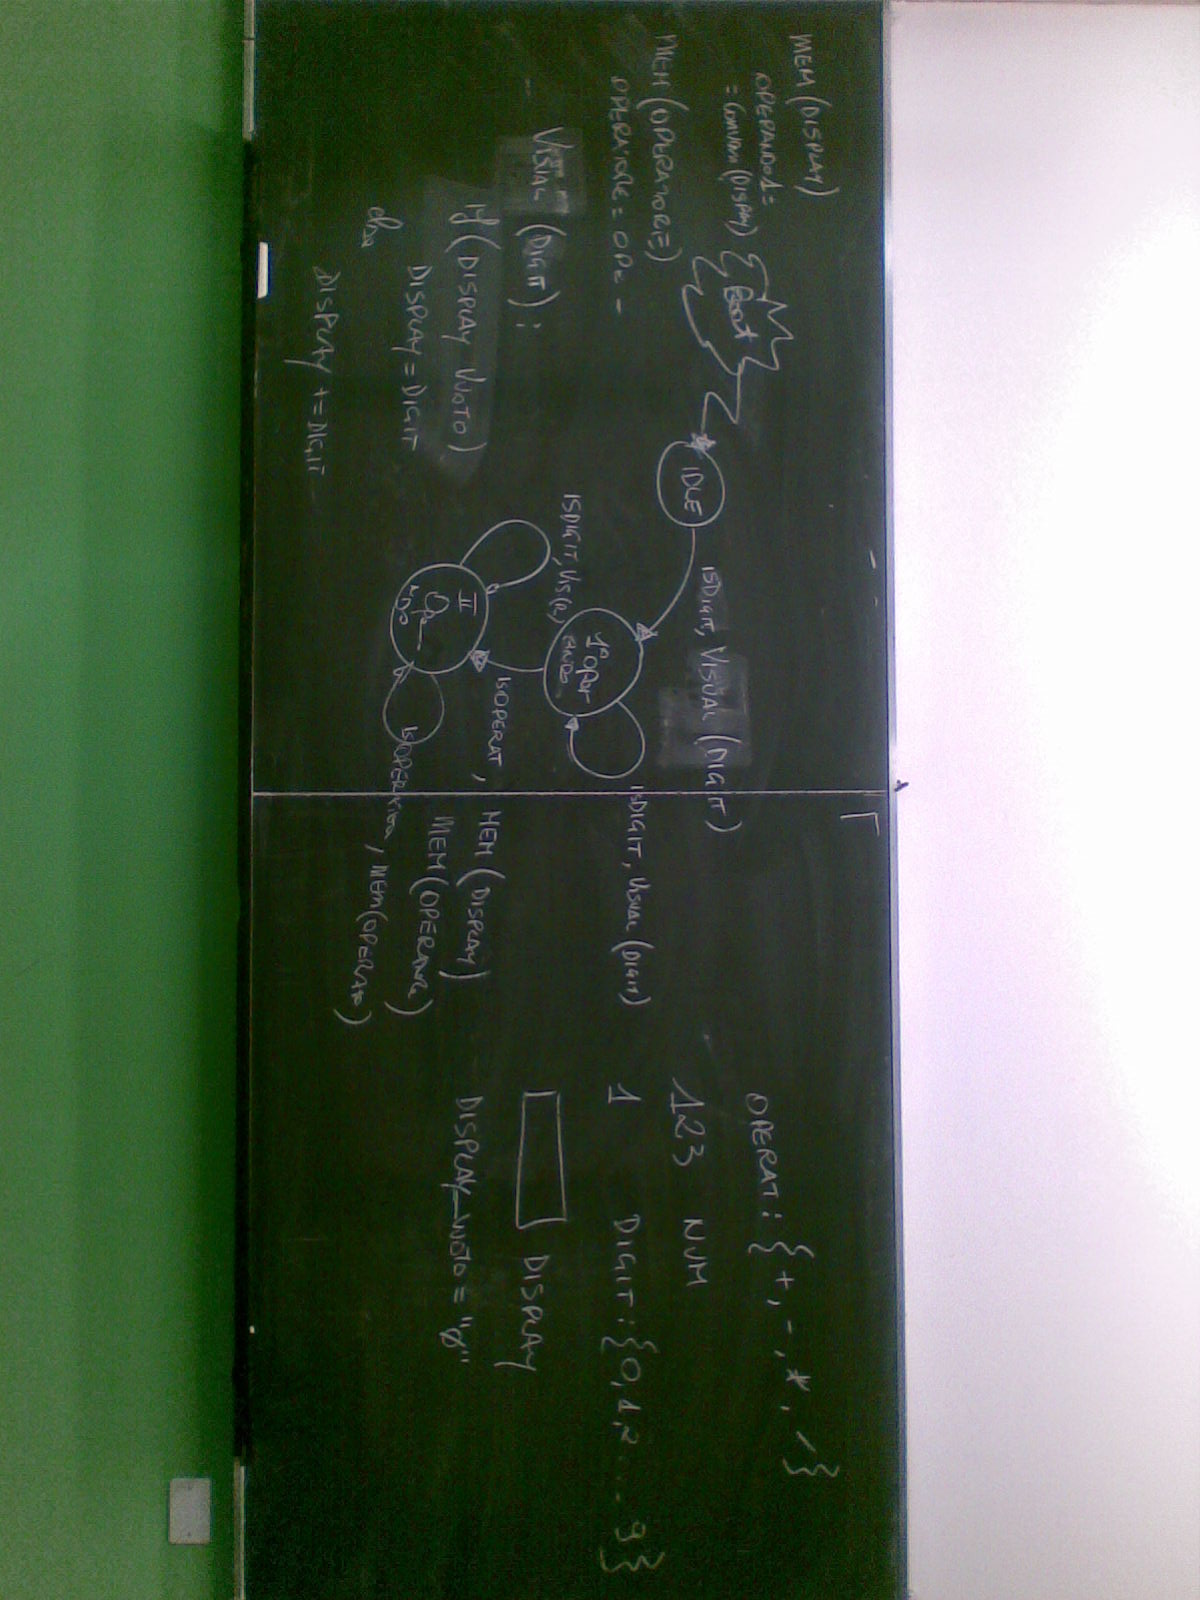 MEM (DISPLAY)
OPERANDO1=
= (DISPLAY)
MEM (OPERATORE)
OPERATORE = OPE -
VISUAL (DIGIT) :
if (DISPLAY VUOTO)
DISPLAY = DIGIT
else
DISPLAY += DIGIT
Boot
IDLE
ISDIGIT, VISUAL (DIGIT)
1° OPER
ANDO
ISDIGIT, VISUAL (DIGIT)
ISOPERAT, MEM (DISPLAY)
MEM (OPERATORE)
ISDIGIT,
II
OPE
NDO
ISOPERATORE, MEM (OPERATO)
OPERAT : { +, -, *, / }
123 NUM
1 DIGIT : {0,1,2 ... 9}
DISPLAY
DISPLAY_VUOTO = "Ø"